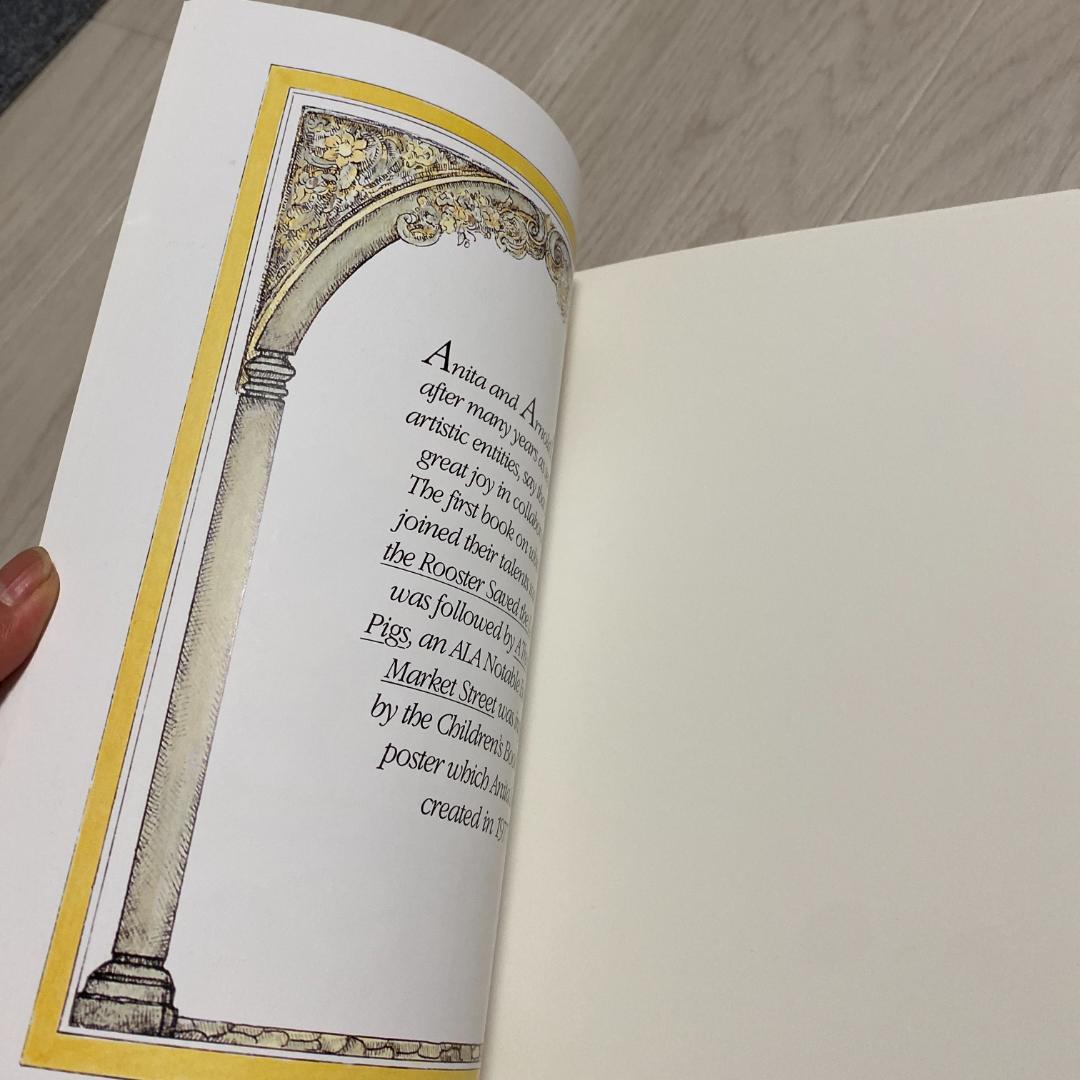 Anita and Arnold
after many years as
artistic entities, say
great joy in
The first book on
joined their talents
the Rooster Saved the
was followed by
Pigs, an ALA Notable
Market Street was
by the Children's
poster which Anita
created in